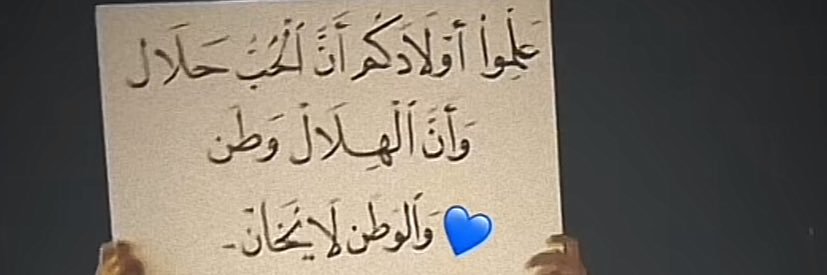 عَلِّمُوا أَوْلَادَكُم أَنَّ ٱلْحُبَّ حَلَال
وَأَنَّ ٱلْهِلَالْ وَطَن
💙 وَٱلوَطَن لَا يُخَان-